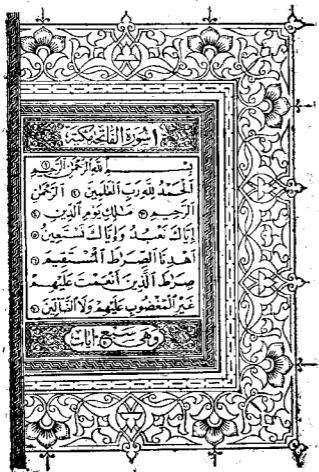 ١ سورة الفاتحة مكية
بِسْمِ اللهِ الرَّحْمٰنِ الرَّحِيمِ ①
اَلْحَمْدُ لِلّٰهِ رَبِّ الْعٰلَمِينَ ② الرَّحْمٰنِ
الرَّحِيمِ ③ مٰلِكِ يَوْمِ الدِّينِ ④
إِيَّاكَ نَعْبُدُ وَإِيَّاكَ نَسْتَعِينُ ⑤
اهْدِنَا الصِّرَاطَ الْمُسْتَقِيمَ ⑥
صِرَاطَ الَّذِينَ أَنْعَمْتَ عَلَيْهِمْ
غَيْرِ الْمَغْضُوبِ عَلَيْهِمْ وَلَا الضَّالِّينَ ⑦
وهي سبع آيات